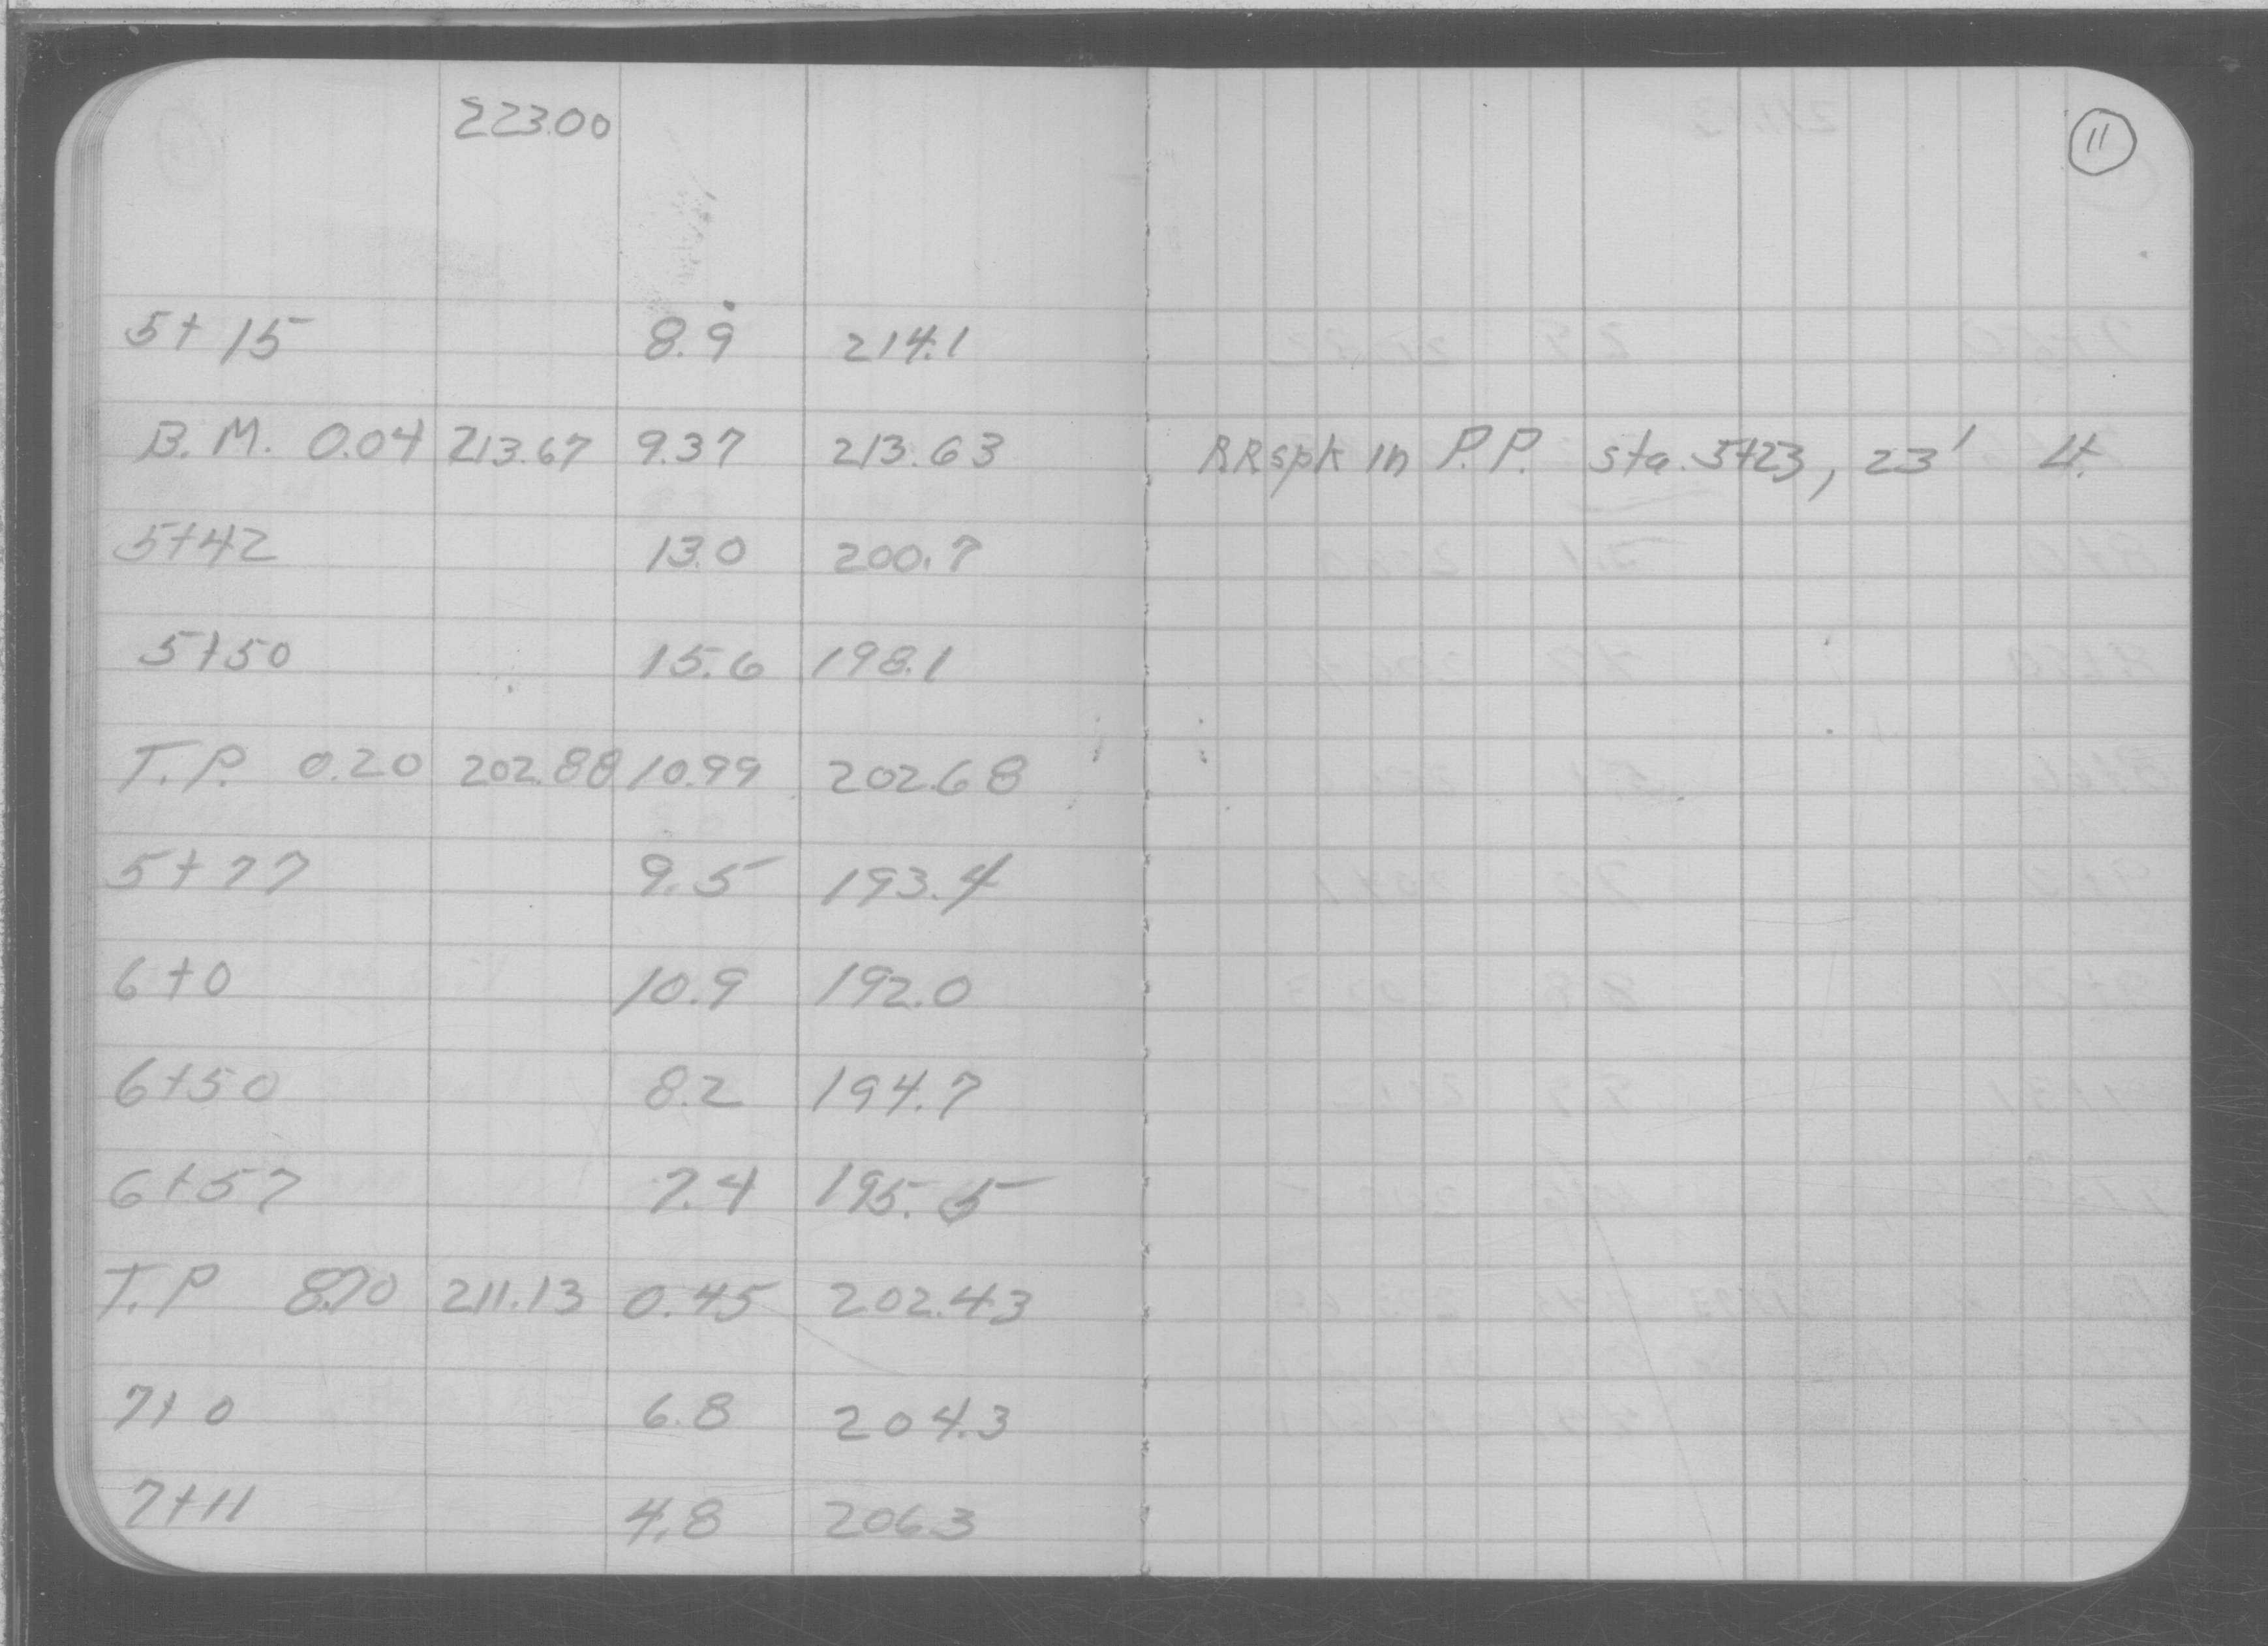 223.00
11
5+15 8.9 214.1
B.M. 0.04 213.67 9.37 213.63 RRspk in P.P. sta. 5+23, 23' Lt.
5+42 13.0 200.7
5+50 15.6 198.1
T.P. 0.20 202.88 10.99 202.68
5+77 9.5 193.4
6+0 10.9 192.0
6+50 8.2 194.7
6+57 7.4 195.5
T.P 8.70 211.13 0.45 202.43
7+0 6.8 204.3
7+11 4.8 206.3